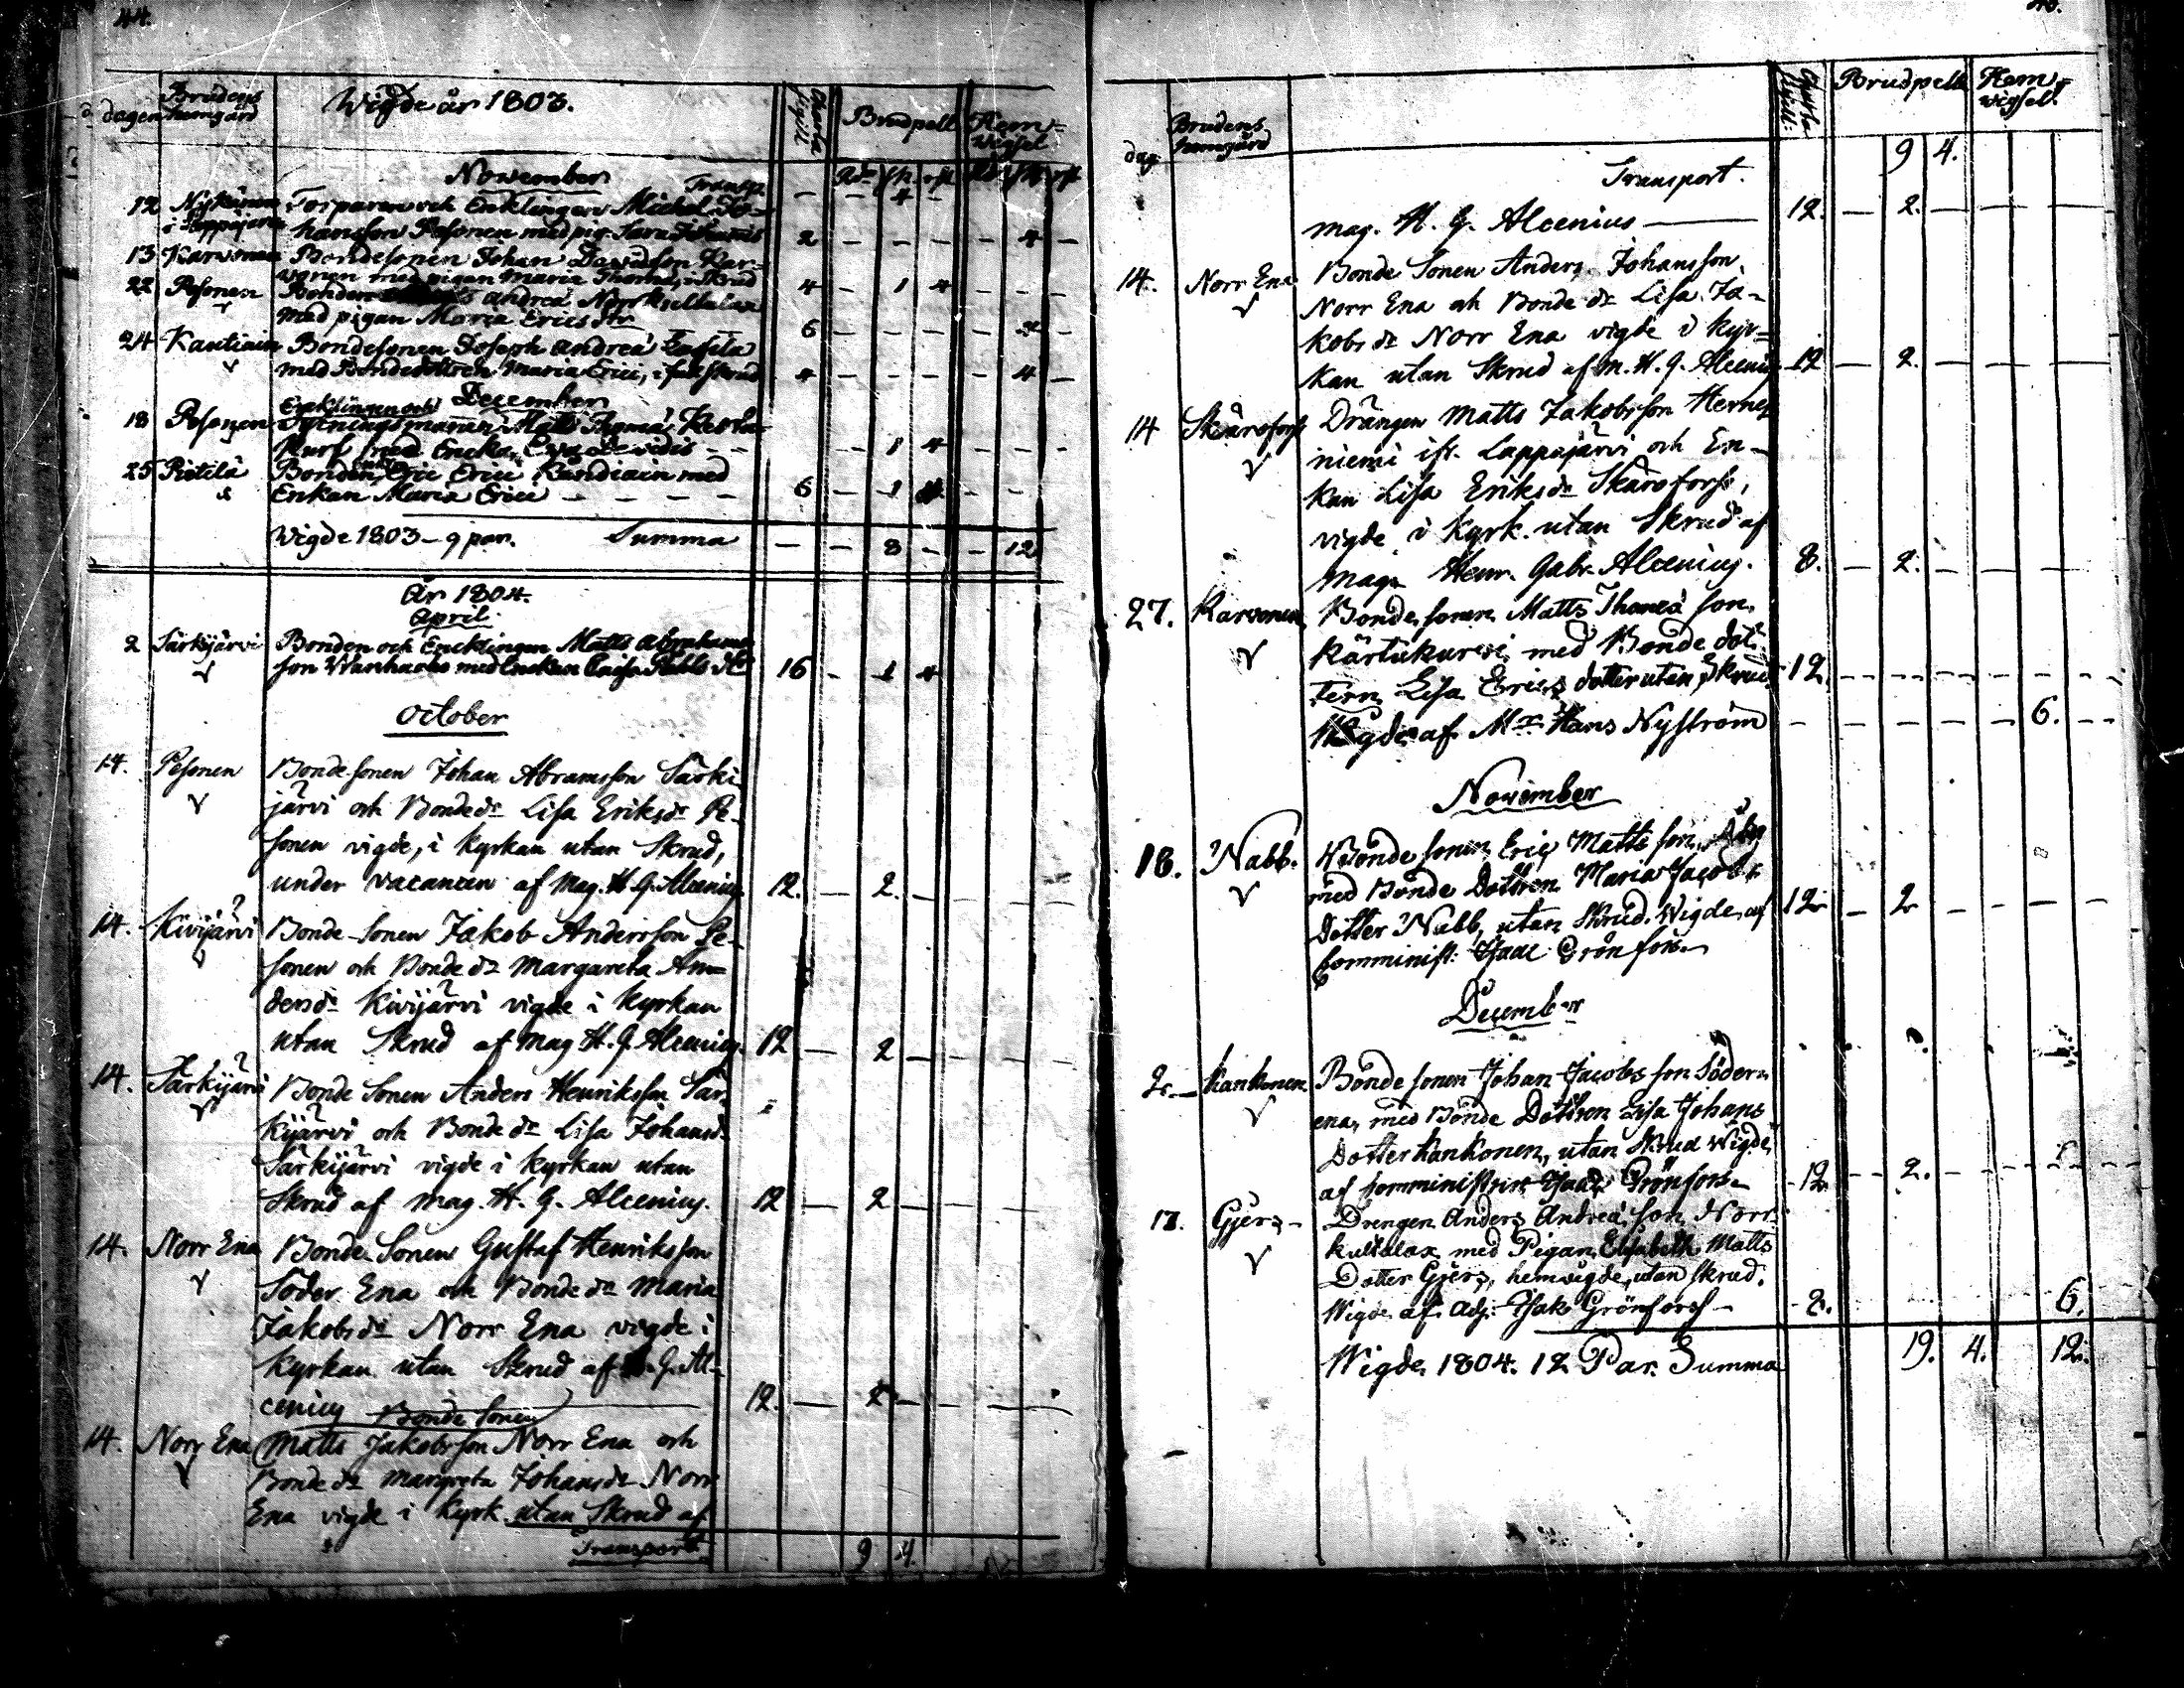 44.
dagen Brudens hemgård Wigde år 1803. Charta Sigill Brudpell Hem= wigsel
November
Transp. — — 4 —
12 Nykänen Torparen och Enklingen Michel Jo-
i Lappajärvi hansson Pesonen med pig. Sara Johannis 2 — — — — 4 —
13 Karvonen Bondesonen Johan Davidsson Kar-
vonen med pigan Maria Thomæ, i Skrud 4 — 1 4 — — —
22 Pesonen Bonden Andreä Norrkulthalax
med pigan Maria Ericsdr 6 — — — — —
24 Kautiain Bondesonen Joseph Andreä
med Bondedottren Maria Erici, 4 — — — — 4 —
December
18 Pesonen Enklingen och
Matts Thomæ
med Encka — 1 4 — — —
25 Pietilä Bonden Eric Erici Kandiain med
Enkan Maria Erici — — — — 6 — 1 4 — —
Wigde 1803 – 9 par. Summa — — 8 — — 12
År 1804.
April
2 Särkijärvi Bonden och Encklingen Matts Abrahams
son Wanhacko med Enckan Caisa Matts dr 16 — 1 4
October
14. Pesonen Bonde sonen Johan Abramsson Särki
järvi och Bonde dr Lisa Eriksdr Pe-
sonen vigde, i kyrkan utan Skrud,
under vacancen af Mag. H. G. Alcenius 12. — 2. — — — —
14. Kivijärvi Bonde-Sonen Jakob Andersson Pe-
sonen och Bonde dr Margareta An-
dersdr Kivijärvi vigde i kyrkan
utan Skrud af Mag H. G. Alcenius. 12 — 2 — — — —
14. Särkijärvi Bonde Sonen Anders Henriksson Sär-
kijärvi och Bonde dr Lisa Johansd.
Särkijärvi vigde i kyrkan utan
Skrud af Mag. H. G. Alcenius. 12 — 2 — — —
14. Norr Ena Bonde Sonen Gustaf Henriksson
Söder Ena och Bonde dr Maria
Jakobsdr Norr Ena vigde i
Kyrkan utan Skrud af H. G. Al-
cenius 12. — 2 — — — —
Bonde Sonen
14. Norr Ena Matts Jakobsson Norr Ena och
Bonde dr Margreta Johansdr Norr
Ena vigde i kyrk. utan Skrud af
Transport 9 4.
dag Brudens hemgård Charta Sigill: Brudpell Hem= wigsel.
Transport. 9 4.
Mag. H. G. Alcenius — 12. — 2. — — — —
14. Norr Ena Bonde Sonen Anders Johansson
Norr Ena och Bonde dr Lisa Ja-
kobs dr Norr Ena vigde i kyr-
kan utan Skrud af M. H. G. Alcenius 12 — 2. — — — —
14 Skårsfors Drängen Matts Jakobsson Hernes
niemi ifr. Lappajärvi och En-
kan Lisa Eriksdr Skårsfors,
vigde i kyrk. utan Skrud af
Mag. Henr. Gabr. Alcenius. 8. — 2. — — — —
27. Karvonen Bonde sonen Matts Thomæ son
Kärtukurvi, med Bonde dot-
tern Lisa Erics dotter utan Skrud 12. — — — — — —
Wigde af Mr Hans Nyström — — — — 6. —
November
18. Nabb. Bonde sonen Eric Mattsson,
med Bonde Dottren Maria Jacobs
Dotter Nabb, utan Skrud. Wigde af 12 — 2 — — — —
Comminist: Isaac Grönfors.
December
2. — Kankonen Bonde sonen Johan Jacobs son Söder-
ena, med Bonde Dottren Lisa Johans
Dotter Kankonen, utan Skrud Wigde
af Comministern Isaac Grönfors. 12 — 2. — — — —
17. Gjers — Drengen Anders Andreä son Norr
kultalax med Pigan Elisabeth Matts
Dotter Gjers, hemwigde, utan skrud.
Wigde af Adj. Isak Grönfors — 2. 6.
Wigde 1804. 12 Par. Summa 19. 4. 12.